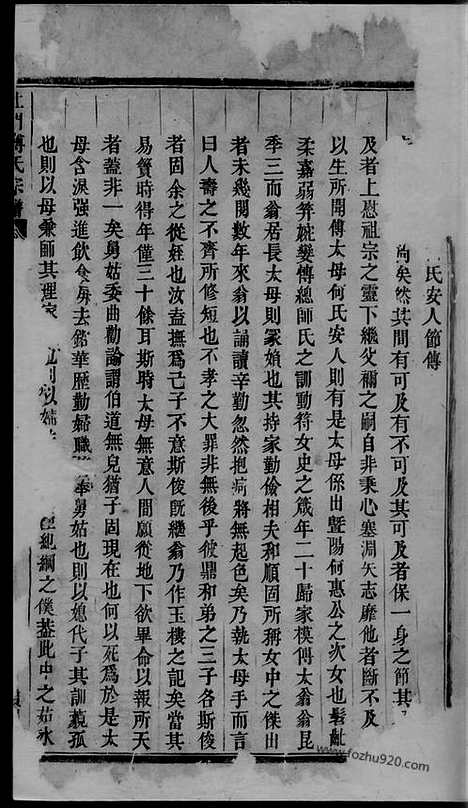 上門傅氏宗譜
氏安人節傳
尚矣然其間有可及有不可及者保一身之節其
及者上慰祖宗之靈下繼父禰之嗣自非秉心塞淵矢志靡他者斷不及
以生所聞傅太母何氏安人則有是太母係出暨陽何惠公之次女也髫齔
柔嘉弱笄婉孌傅總師氏之訓動符女史之箴年二十歸家模傅太翁翁昆
季三而翁居長太母則冢婦也其持家勤儉相夫和順固所稱女中之傑出
者未幾閱數年來翁以誦讀辛勤忽然抱疴將無起色矣乃執太母手而言
曰人壽之不齊所修短也不孝之大罪非無後乎彼鼎和弟之三子名斯俊
者固余之從姪也汝盍撫爲己子不意斯俊旣繼翁乃作玉樓之記矣當其
易簀時得年僅三十餘耳斯時太母無意人間願從地下欲畢命以報所天
者蓋非一矣舅姑委曲勸諭謂伯道無兒猶子固現在也何以死爲於是太
母含淚強進飲食屏去鉛華歷勤婦職 奉舅姑也則以媳代子其訓藐孤
也則以母兼師其理家 則以嫡 紀綱之僕蓋此中之茹氷
www.fozhu920.com